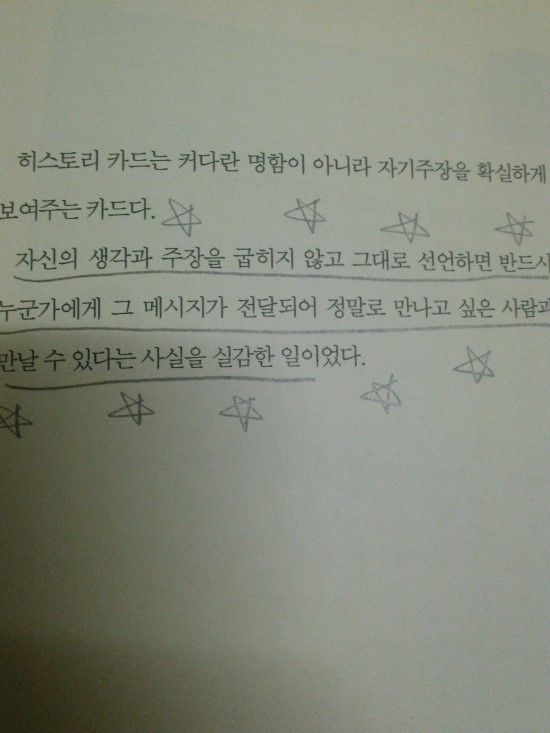 히스토리 카드는 커다란 명함이 아니라 자기주장을 확실하게
보여주는 카드다.
자신의 생각과 주장을 굽히지 않고 그대로 선언하면 반드시
누군가에게 그 메시지가 전달되어 정말로 만나고 싶은 사람과
만날 수 있다는 사실을 실감한 일이었다.